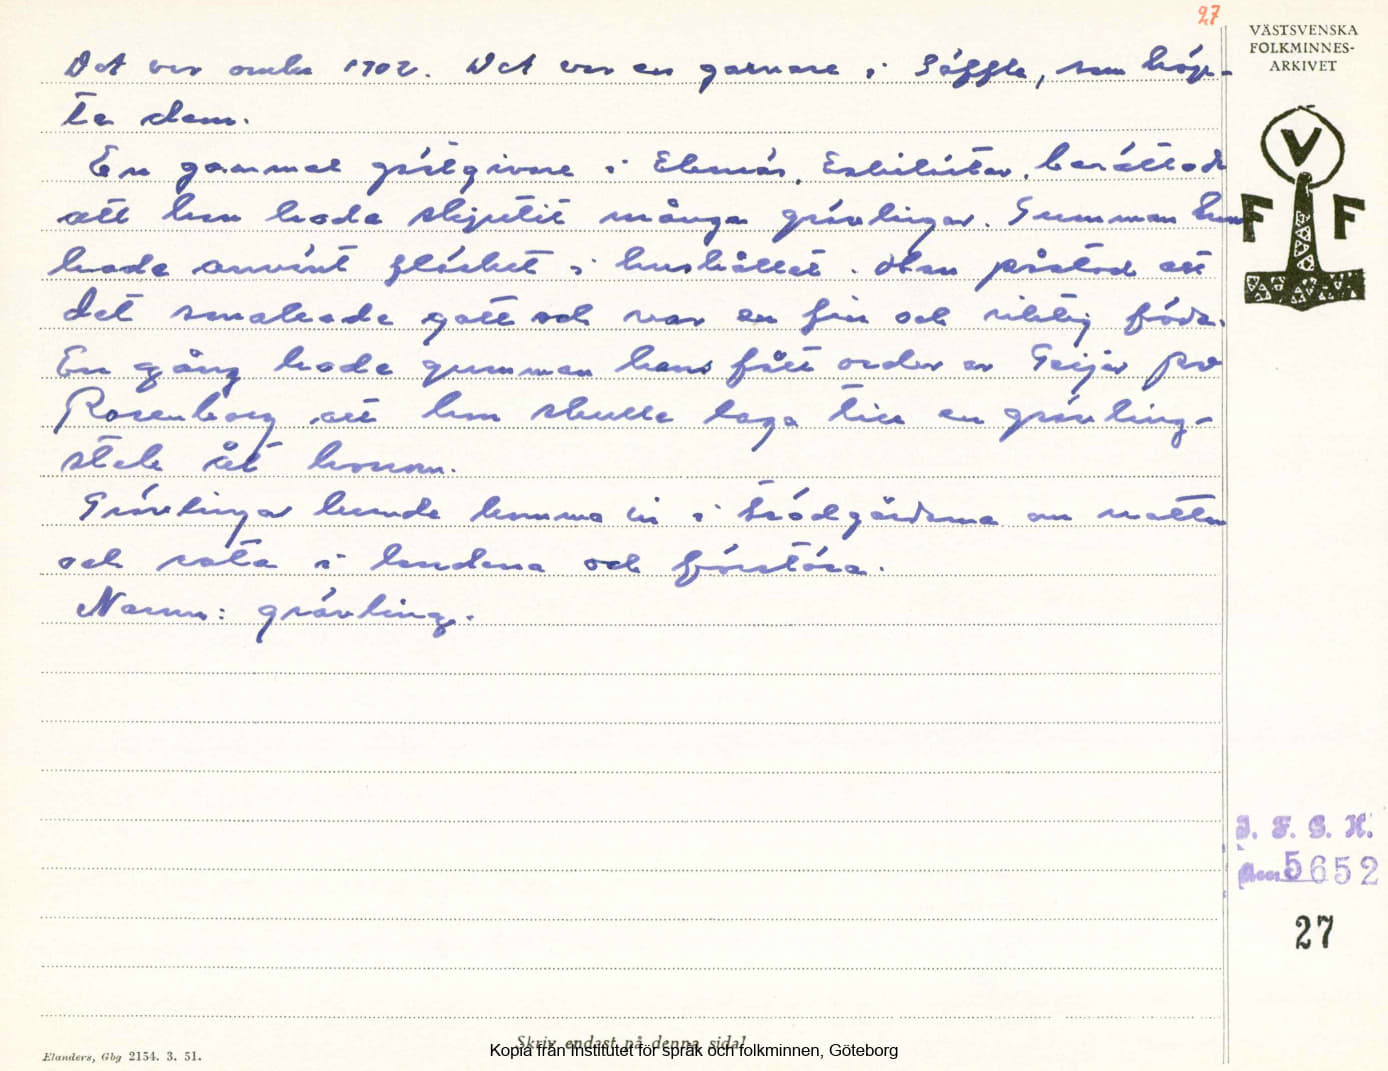 27
VÄSTSVENSKA
FOLKMINNES-
ARKIVET
V
F F
Det var omkr 1902. Det var en garvare i Säffle, som köp-
te dem.
En gammal gästgivare i Elenäs, Eskilsäter, berättade
att han hade skjutit många grävlingar. Gumman hans
hade använt fläsket i hushållet. Han påstod att
det smakade gott och var en fin och riktig föda.
En gång hade gumman hans fått order av Geijer på
Rosenborg att hon skulle laga till en grävling-
stek åt honom.
Grävlingar kunde komma in i trädgårdarna om natten
och rota i landena och förstöra.
Namn: grävling.
I. F. G. H.
5652
27
Elanders, Gbg 2154. 3. 51.
Skriv endast på denna sida!
Kopia från Institutet för språk och folkminnen, Göteborg